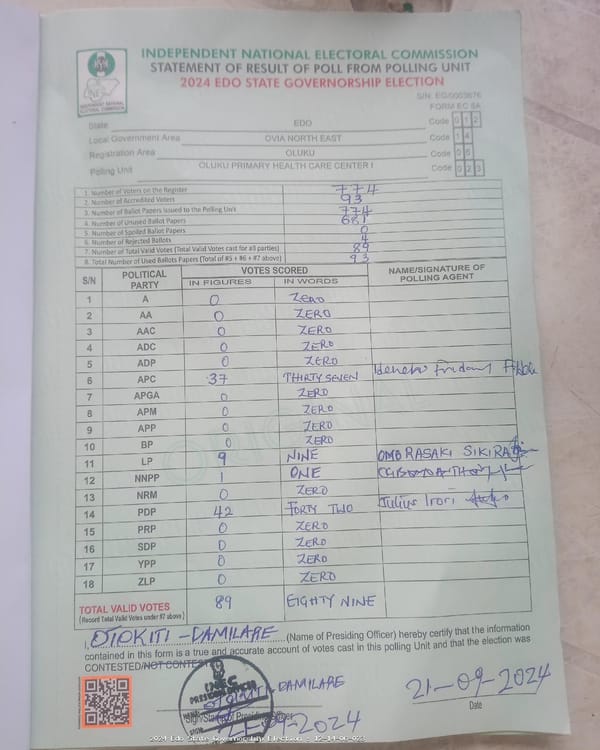 INDEPENDENT NATIONAL ELECTORAL COMMISSION
STATEMENT OF RESULT OF POLL FROM POLLING UNIT
2024 EDO STATE GOVERNORSHIP ELECTION
S/N: EG/0003676
FORM EC 8A
State EDO Code 0 1 2
Local Government Area OVIA NORTH EAST Code 1 4
Registration Area OLUKU Code 0 6
Polling Unit OLUKU PRIMARY HEALTH CARE CENTER I Code 0 2 3
1. Number of Voters on the Register 774
2. Number of Accredited Voters 93
3. Number of Ballot Papers Issued to the Polling Unit 774
4. Number of Unused Ballot Papers 681
5. Number of Spoiled Ballot Papers 0
6. Number of Rejected Ballots 4
7. Number of Total Valid Votes (Total Valid Votes cast for all parties) 89
8. Total Number of Used Ballots Papers (Total of #5 + #6 + #7 above) 93
S/N POLITICAL PARTY VOTES SCORED NAME/SIGNATURE OF POLLING AGENT
IN FIGURES IN WORDS
1 A 0 ZERO
2 AA 0 ZERO
3 AAC 0 ZERO
4 ADC 0 ZERO
5 ADP 0 ZERO
6 APC 37 THIRTY SEVEN
7 APGA 0 ZERO
8 APM 0 ZERO
9 APP 0 ZERO
10 BP 0 ZERO
11 LP 9 NINE OMO RASAKI SIKIRA
12 NNPP 1 ONE
13 NRM 0 ZERO
14 PDP 42 FORTY TWO Julius Irori
15 PRP 0 ZERO
16 SDP 0 ZERO
17 YPP 0 ZERO
18 ZLP 0 ZERO
TOTAL VALID VOTES 89 EIGHTY NINE
(Record Total Valid Votes under #7 above)
I, OTOKITI - DAMILARE (Name of Presiding Officer) hereby certify that the information
contained in this form is a true and accurate account of votes cast in this polling Unit and that the election was
CONTESTED/NOT CONTESTED
OTOKITI - DAMILARE
21-09-2024
Date
2024 Edo State Governorship Election - 12-14-06-023